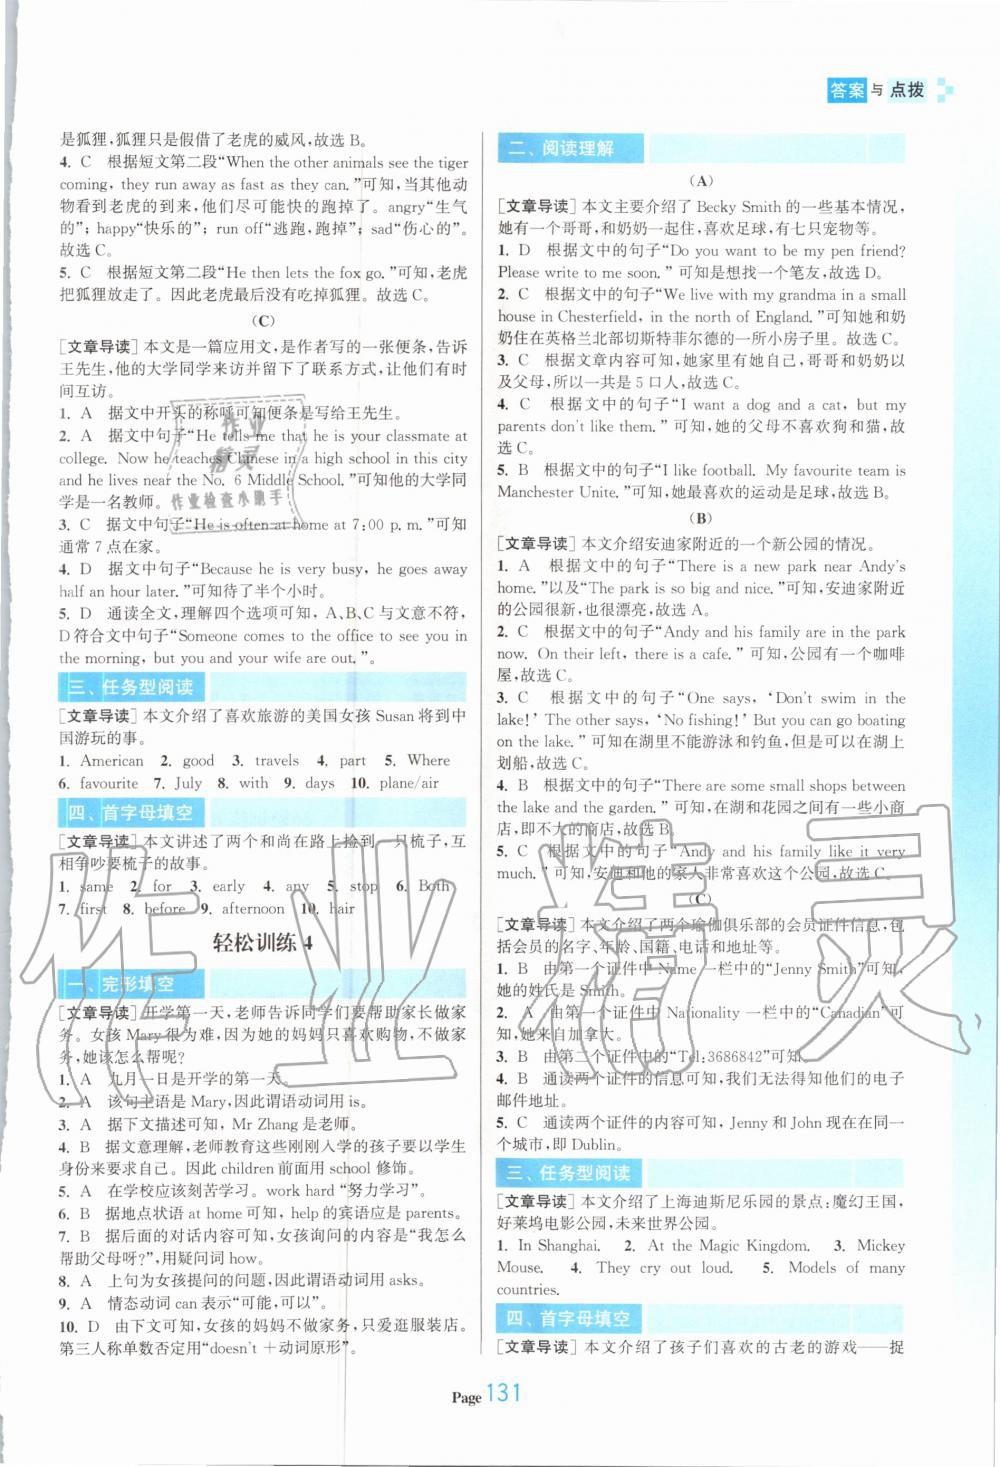 答案与点拨
是狐狸,狐狸只是假借了老虎的威风,故选 B。
4. C 根据短文第二段“When the other animals see the tiger
coming, they run away as fast as they can.”可知,当其他动
物看到老虎的到来,他们尽可能快的跑掉了。angry“生气
的”; happy“快乐的”; run off“逃跑,跑掉”; sad“伤心的”。
故选 C。
5. C 根据短文第二段“He then lets the fox go.”可知,老虎
把狐狸放走了。因此老虎最后没有吃掉狐狸。故选 C。
(C)
[文章导读] 本文是一篇应用文,是作者写的一张便条,告诉
王先生,他的大学同学来访并留下了联系方式,以便他们有
时间互访。
1. A 据文中开头的称呼可知便条是写给王先生。
2. A 据文中句子“He tells me that he is your classmate at
college. Now he teaches Chinese in a high school in this city
and he lives near the No. 6 Middle School.”可知他的大学同
学是一名教师。
3. C 据文中句子“He is often at home at 7:00 p. m.”可知
通常 7 点在家。
4. D 据文中句子“Because he is very busy, he goes away
half an hour later.”可知待了半个小时。
5. D 通读全文,理解四个选项可知,A、B、C 与文意不符,
D 符合文中句子“Someone comes to the office to see you in
the morning, but you and your wife are out.”。
三、任务型阅读
[文章导读] 本文介绍了喜欢旅游的美国女孩 Susan 将到中
国游玩的事。
1. American 2. good 3. travels 4. part 5. Where
6. favourite 7. July 8. with 9. days 10. plane/air
四、首字母填空
[文章导读] 本文讲述了两个和尚在路上捡到一只梳子,互
相争吵要梳子的故事。
1. same 2. for 3. early 4. any 5. stop 6. Both
7. first 8. before 9. afternoon 10. hair
轻松训练 4
一、完形填空
[文章导读] 开学第一天,老师告诉同学们要帮助家长做家
务。女孩 Mary 很为难,因为她的妈妈只喜欢购物,不做家
务,她该怎么帮呢?
1. A 九月一日是开学的第一天。
2. A 该句主语是 Mary,因此谓语动词用 is。
3. A 根据下文可知,Mr Zhang 是老师。
4. B 据文意理解,老师教育这些刚刚入学的孩子要以学生
身份来要求自己。因此 children 前面用 school 修饰。
5. A 在学校应该刻苦学习。work hard“努力学习”。
6. B 据地点状语 at home 可知,help 的宾语应是 parents。
7. B 据后面的对话内容可知,女孩询问的内容是“我怎么
帮助父母呀?”,用疑问词 how。
8. A 上句为女孩提问的问题,因此谓语动词用 asks。
9. A 情态动词 can 表示“可能,可以”。
10. D 由下文可知,女孩的妈妈不做家务,只爱逛服装店。
第三人称单数否定用“doesn't +动词原形”。
二、阅读理解
(A)
[文章导读] 本文主要介绍了 Becky Smith 的一些基本情况,
她有一个哥哥,和奶奶一起住,喜欢足球,有七只宠物等。
1. D 根据文中的句子“Do you want to be my pen friend?
Please write to me soon.”可知是想找一个笔友,故选 D。
2. C 根据文中的句子“We live with my grandma in a small
house in Chesterfield, in the north of England.”可知她和奶
奶住在英格兰北部切斯特菲尔德的一所小房子里。故选 C。
3. C 根据文章内容可知,她家里有她自己,哥哥和奶奶以
及父母,所以一共是 5 口人,故选 C。
4. C 根据文中的句子“I want a dog and a cat, but my
parents don't like them.”可知,她的父母不喜欢狗和猫,故
选 C。
5. B 根据文中的句子“I like football. My favourite team is
Manchester Unite.”可知,她最喜欢的运动是足球,故选 B。
(B)
[文章导读] 本文介绍安迪家附近的一个新公园的情况。
1. A 根据文中的句子“There is a new park near Andy's
home.”以及“The park is so big and nice.”可知,安迪家附近
的公园很新,也很漂亮,故选 A。
2. C 根据文中的句子“Andy and his family are in the park
now. On their left, there is a cafe.”可知,公园有一个咖啡
屋,故选 C。
3. C 根据文中的句子“One says, ‘Don't swim in the
lake!’ The other says, ‘No fishing!’ But you can go boating
on the lake.”可知在湖里不能游泳和钓鱼,但是可以在湖上
划船,故选 C。
4. B 根据文中的句子“There are some small shops
between the lake and the garden.”可知,在湖和花园之间有一些小商
店,即不大的商店,故选 B。
5. C 根据文中的句子“Andy and his family like it very
much.”可知,安迪和他的家人非常喜欢这个公园,故选 C。
(C)
[文章导读] 本文介绍了两个瑜伽俱乐部的会员证件信息,包
括会员的名字、年龄、国籍、电话和地址等。
1. B 由第一个证件中 Name 一栏中的“Jenny Smith”可知,
她的姓氏是 Smith。
2. A 由第一个证件中 Nationality 一栏中的“Canadian”可
知,她来自加拿大。
3. B 由第二个证件中的“Tel:3686842”可知。
4. B 通读两个证件的信息可知,我们可知他们的电子
邮件地址。
5. C 通读两个证件的内容可知,Jenny 和 John 现在在同
一个城市,即 Dublin。
三、任务型阅读
[文章导读] 本文介绍了上海迪斯尼乐园的景点:魔幻王国,
好莱坞电影公园,未来世界公园。
1. In Shanghai. 2. At the Magic Kingdom. 3. Mickey
Mouse. 4. They cry out loud. 5. Models of many
countries.
四、首字母填空
[文章导读] 本文介绍了孩子们喜欢的古老的游戏——捉
Page 131
作业精灵
作业检查小助手
作业精灵